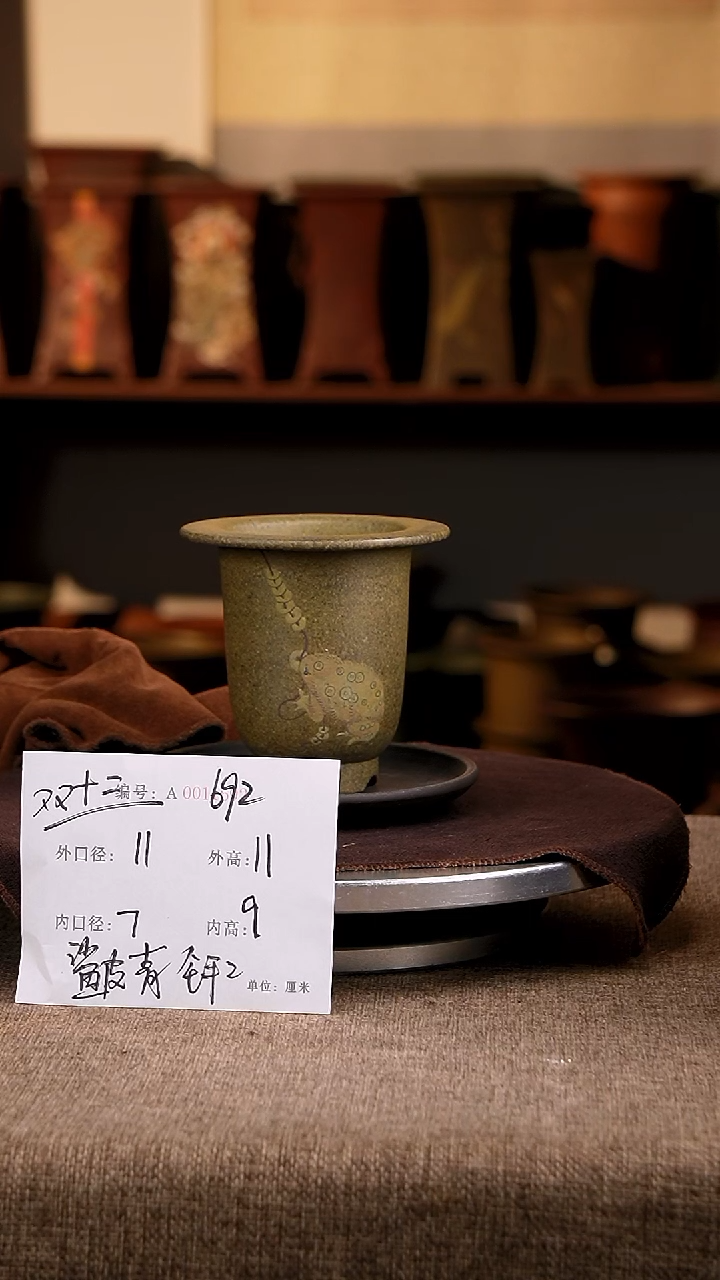 双十二 编号: A 001 692
外口径: 11 外高: 11
内口径: 7 内高: 9
鲨皮青
单位: 厘米